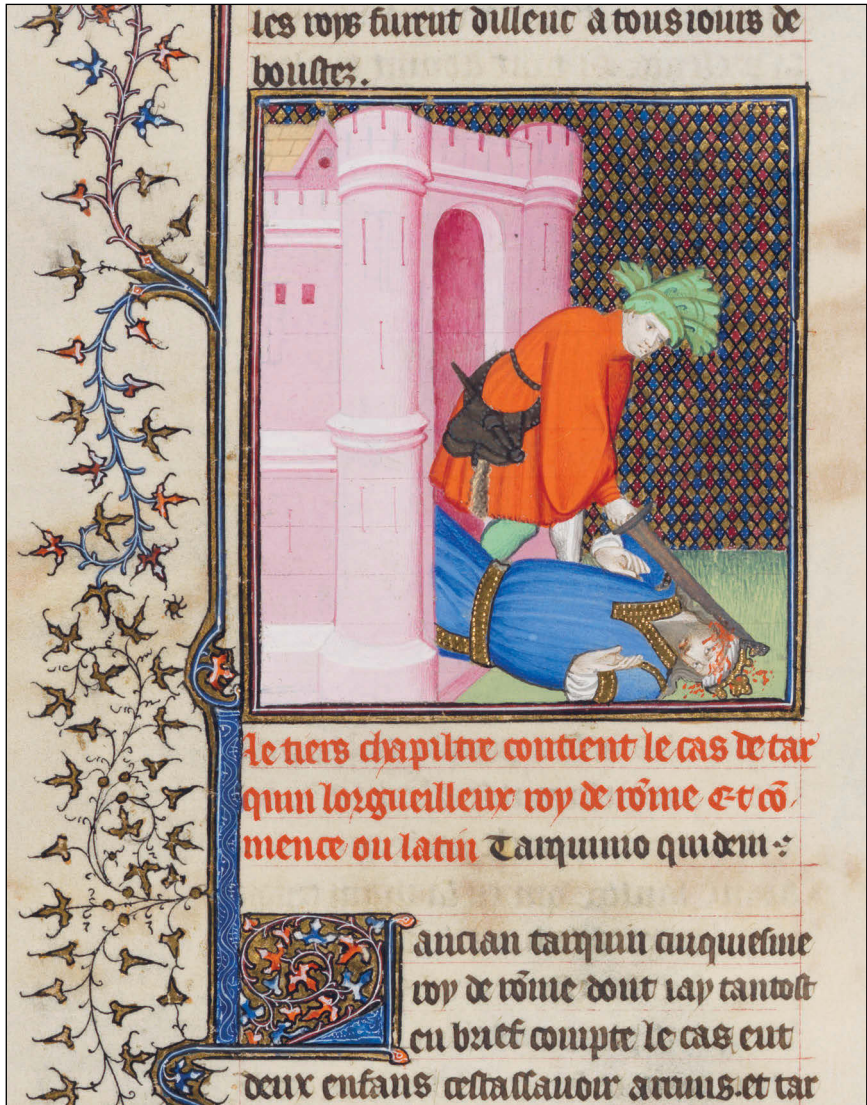 les roys furent dillenc a tousiours de
boustez.
Le tiers chapiltre contient le cas de tar
quin lorgueilleux roy de rõme Et cõ,
mence ou latin Tarquinio quidem
Lancian tarquin cinquiesme
roy de rõme dont iay tantost
en brief compte le cas eut
deux enfans cestassauoir arruns. et tar